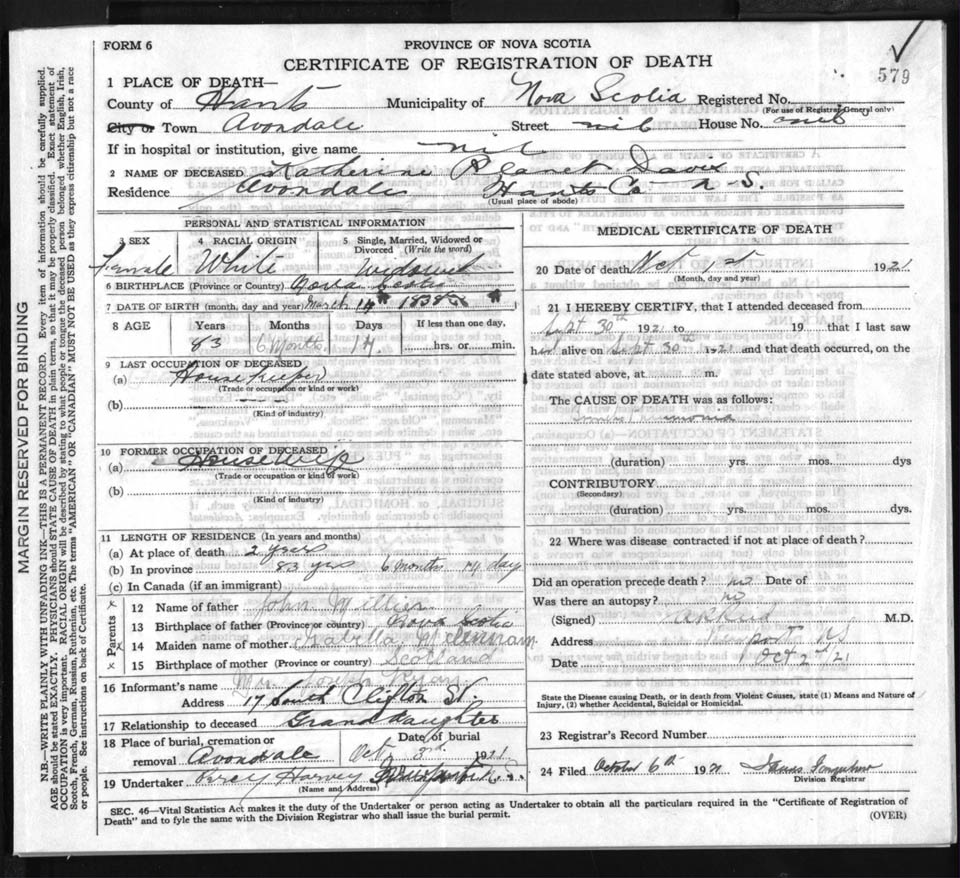 FORM 6
PROVINCE OF NOVA SCOTIA
CERTIFICATE OF REGISTRATION OF DEATH
579
1 PLACE OF DEATH—
County of Hants Municipality of Nova Scotia Registered No.
(For use of Registrar General only)
City or Town Avondale Street nil House No.
If in hospital or institution, give name nil
2 NAME OF DECEASED Katherine Davis
Residence Avondale Hants Co N-S.
(Usual place of abode)
PERSONAL AND STATISTICAL INFORMATION
3 SEX 4 RACIAL ORIGIN 5 Single, Married, Widowed or Divorced (Write the word)
Female White Widowed
6 BIRTHPLACE (Province or Country) Nova Scotia
7 DATE OF BIRTH (month, day and year) March 14th 1838
8 AGE Years Months Days If less than one day,
83 6 Months 14 hrs. or min.
9 LAST OCCUPATION OF DECEASED
(a) Housekeeper
(Trade or occupation or kind or work)
(b)
(Kind of industry)
10 FORMER OCCUPATION OF DECEASED
(a) Housewife
(Trade or occupation or kind of work)
(b)
(Kind of industry)
11 LENGTH OF RESIDENCE (In years and months)
(a) At place of death 2 years
(b) In province 83 yrs 6 months 14 day
(c) In Canada (if an immigrant)
Parents
12 Name of father John
13 Birthplace of father (Province or country) Nova Scotia
14 Maiden name of mother
15 Birthplace of mother (Province or country) Scotland
16 Informant's name Mrs. Joseph Ryan
Address 17 South Clifton St.
17 Relationship to deceased Granddaughter
18 Place of burial, cremation or removal Avondale
Date of burial Oct 3rd. 1921
19 Undertaker Percy Harvey N.S.
(Name and Address)
MEDICAL CERTIFICATE OF DEATH
20 Date of death Oct 1st 1921
(Month, day and year)
21 I HEREBY CERTIFY, that I attended deceased from
Sept 30th 1921 to 19 that I last saw
her alive on Sept 30th 1921 and that death occurred, on the
date stated above, at m.
The CAUSE OF DEATH was as follows:
(duration) yrs. mos. dys
CONTRIBUTORY
(Secondary)
(duration) yrs. mos. dys.
22 Where was disease contracted if not at place of death?
Did an operation precede death? no Date of
Was there an autopsy? no
(Signed) M.D.
Address N S
Date Oct 2nd 21
State the Disease causing Death, or in death from Violent Causes, state (1) Means and Nature of Injury, (2) whether Accidental, Suicidal or Homicidal.
23 Registrar's Record Number
24 Filed October 6th 1921 James
Division Registrar
SEC. 46—Vital Statistics Act makes it the duty of the Undertaker or person acting as Undertaker to obtain all the particulars required in the "Certificate of Registration of
Death" and to fyle the same with the Division Registrar who shall issue the burial permit.
(OVER)
MARGIN RESERVED FOR BINDING
N.B.—WRITE PLAINLY WITH UNFADING INK—THIS IS A PERMANENT RECORD. Every item of information should be carefully supplied.
AGE should be stated EXACTLY. PHYSICIANS should STATE CAUSE OF DEATH in plain terms, so that it may be properly classified. Exact statement of
OCCUPATION is very important. RACIAL ORIGIN will be described by stating to what people or tongue the deceased person belonged whether English, Irish,
Scotch, French, German, Russian, Ruthenian, etc. The terms "AMERICAN" OR "CANADIAN" MUST NOT BE USED as they express citizenship but not a race
or people. See instructions on back of Certificate.